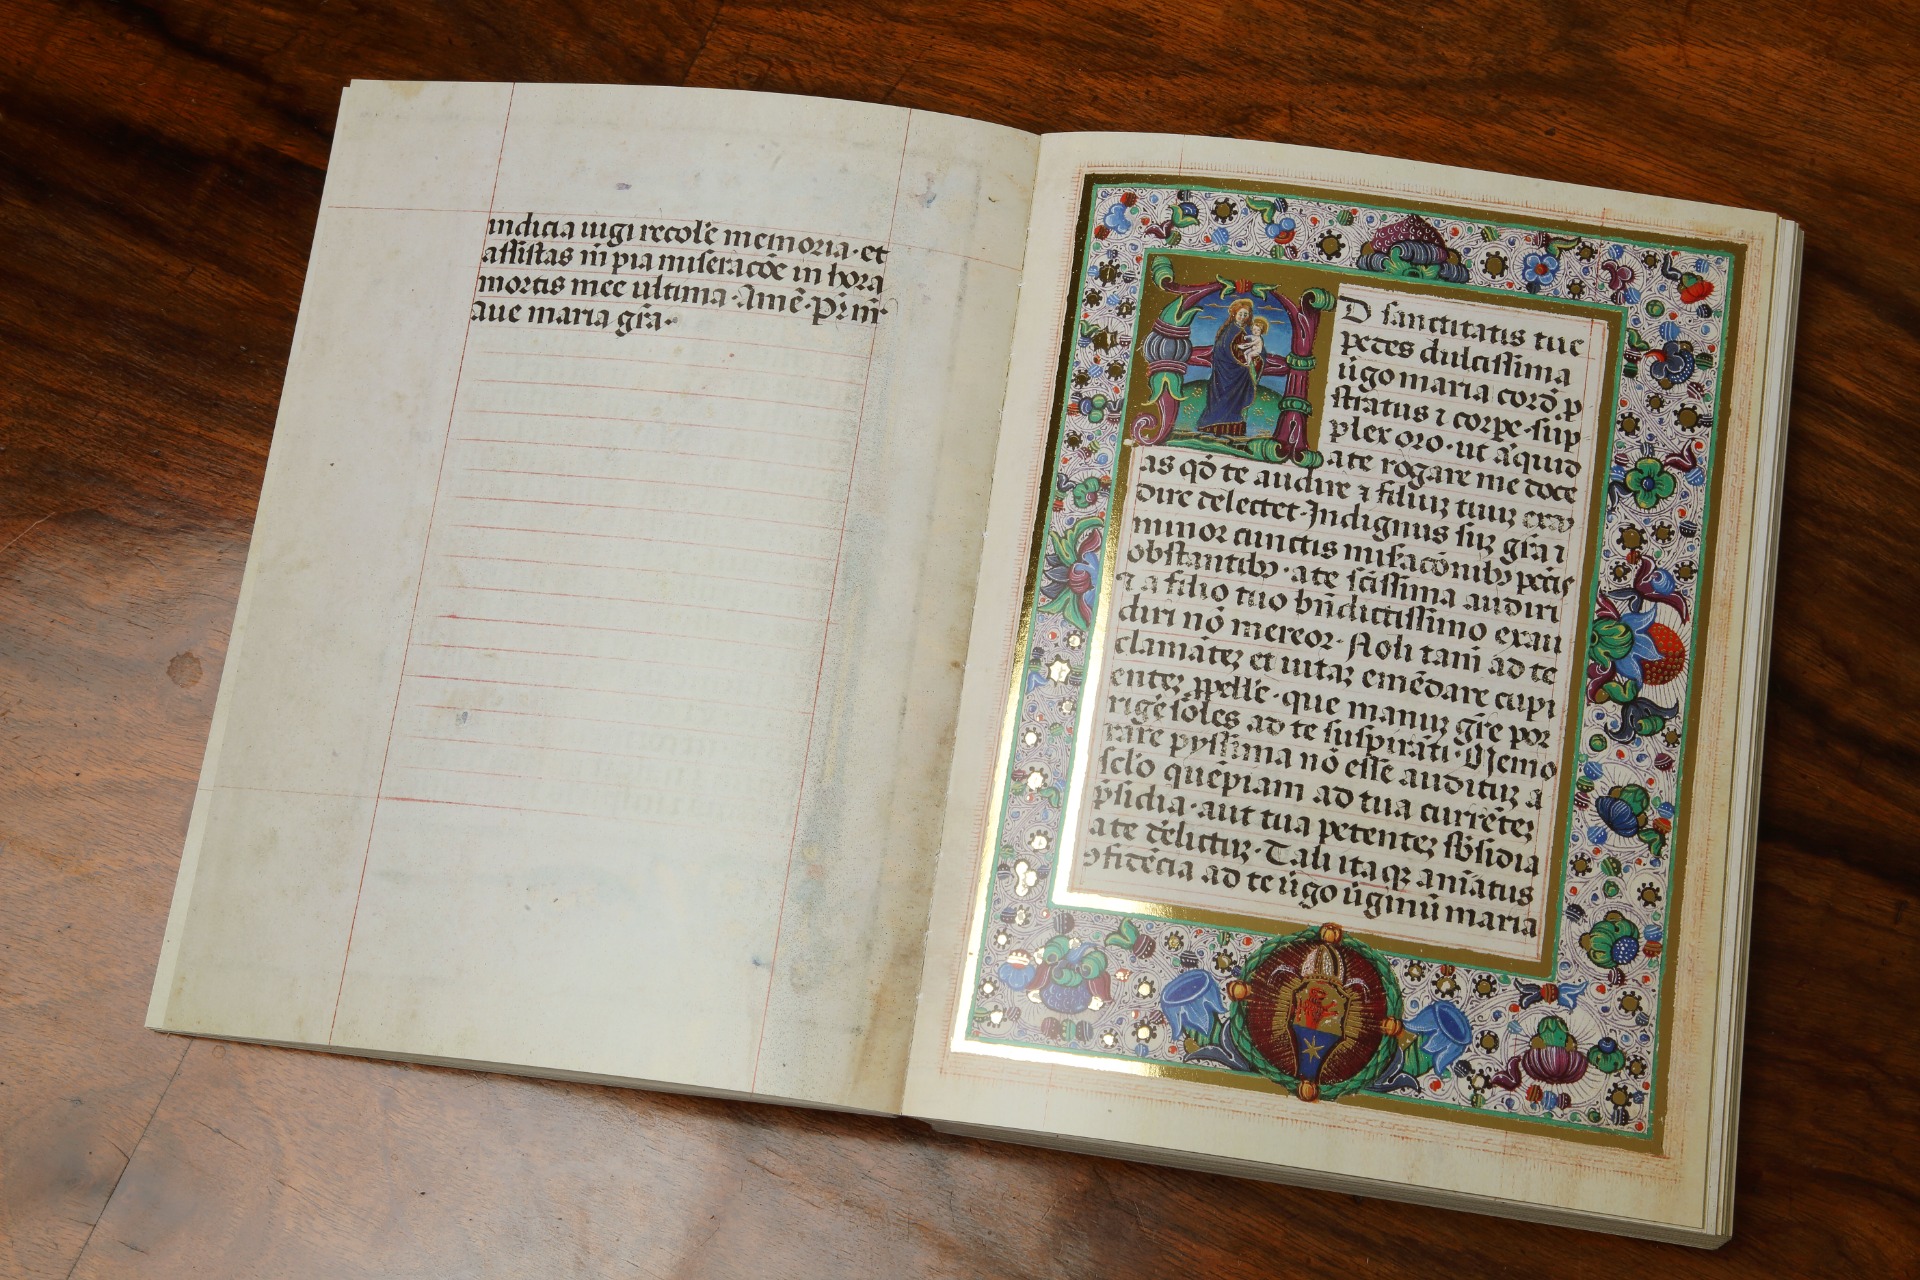 indicia iugi recole memoria · et
assistas in pia miseracōe in hora
mortis mee ultima · Amē · Pr̄ nr̄
Aue maria gr̄a ·
AD sanctitatis tue
pedes dulcissima
ūgo maria cord̄ p
stratus ⁊ corpe · sup
plex oro · ut a quid
ate rogare me doce
as qd̄ te audire ⁊ filiuꝫ tuuꝫ exau
dire delectet · Indignus suꝫ gr̄a ⁊
minor cunctis
obstantibꝫ · a te scissima audiri
⁊ a filio tuo bn̄dictissimo exau
diri nō mereor · Noli tam̄ ad te
clamāteꝫ et uitaꝫ emēdare cupi
enteꝫ · que manuꝫ gr̄e por
rige ad te suspirāti · Nemo
pyssima nō esse audituꝫ a
sclo quēpiam ad tua currēteꝫ
p̄sidia · aut tua petenteꝫ sbsidia
a te · Tali itaqꝫ anīatus
ɔfidēcia ad te ūgo ūginū maria